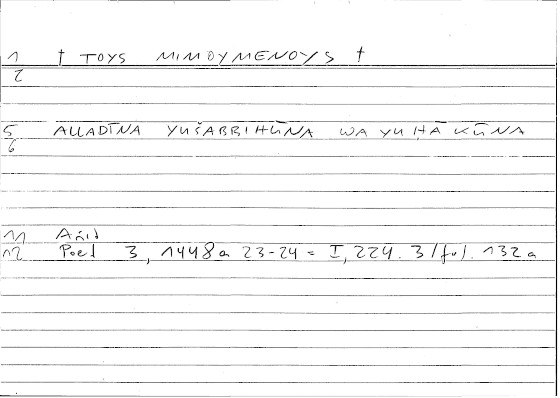 1 † TOYS MIMOYMENOYS †
2
5 ALLADĪNA YUŠABBIHŪNA WA YUḤĀKŪNA
6
11 Arist
12 Poet 3, 1448a 23-24 = I, 224.3/fol. 132a